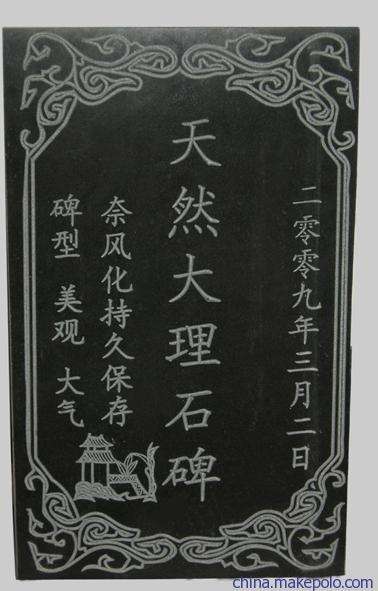 二零零九年三月二日
天然大理石碑
奈风化持久保存
碑型 美观 大气
china.makepolo.com